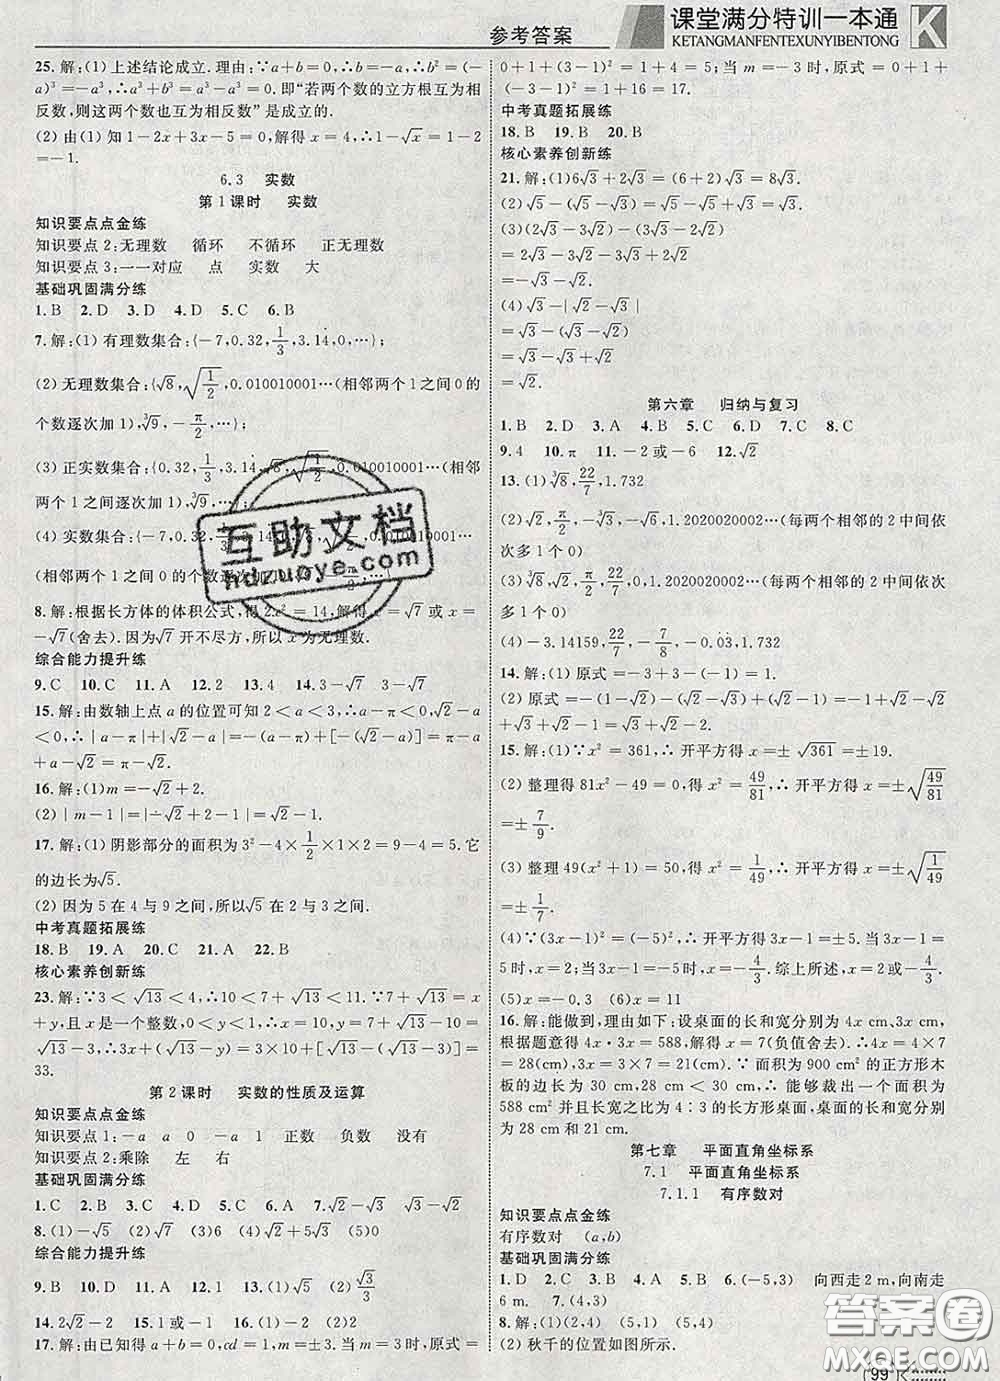 参考答案
课堂满分特训一本通
KETANGMANFENTEXUNYIBENTONG
25.解:(1)上述结论成立.理由:∵a+b=0,∴b=-a,∴b²=(-
a)³=-a³,∴a³+b³=a³-a³=0.即“若两个数的立方根互为相
反数,则这两个数也互为相反数”是成立的.
(2)由(1)知1-2x+3x-5=0,解得x=4,∴1-√x=1-2
=-1.
6.3 实数
第1课时 实数
知识要点点金练
知识要点2:无理数 循环 不循环 正无理数
知识要点3:一一对应 点 实数 大
基础巩固满分练
1.B 2.D 3.D 4.D 5.C 6.B
7.解:(1)有理数集合:{-7,0.32,1/3,3.14,0,…};
(2)无理数集合:{√8,√(1/2),0.010010001…(相邻两个1之间0的
个数逐次加1),³√9,-π/2,…};
(3)正实数集合:{0.32,1/3,3.14,√8,√(1/2),0.010010001…(相邻
两个1之间逐次加1),³√9,…};
(4)实数集合:{-7,0.32,
(相邻两个1之间0的个数逐次加1)
8.解:根据长方体的体积公式,得2x²=14,解得x=√7或x=
-√7(舍去).因为√7开不尽方,所以x为无理数.
综合能力提升练
9.C 10.C 11.A 12.2 13.4 14.3-√7 3-√7
15.解:由数轴上点a的位置可知2<a<3,∴a-π<0,√2-a
<0,∴|a-π|+|√2-a|=-(a-π)+[-(√2-a)]=π-a
+a-√2=π-√2.
16.解:(1)m=-√2+2.
(2)|m-1|=|-√2+2-1|=√2-1.
17.解:(1)阴影部分的面积为3²-4×1/2×1×2=9-4=5.它
的边长为√5.
(2)因为5在4与9之间,所以√5在2与3之间.
中考真题拓展练
18.B 19.A 20.C 21.A 22.B
核心素养创新练
23.解:∵3<√13<4,∴10<7+√13<11,∵7+√13=x
+y,且x是一个整数,0<y<1,∴x=10,y=7+√13-10=
√13-3,∴3x+(√13-y)=3×10+[√13-(√13-3)]=
33.
第2课时 实数的性质及运算
知识要点点金练
知识要点1:-a a 0 -a 1 正数 负数 没有
知识要点2:乘除 左 右
基础巩固满分练
1.C 2.D 3.B 4.C 5.D 6.A 7.√2-√3 √3-√2
8.(1)-√5 (2)√7 (3)6 (4)√2+5√3 (5)0
综合能力提升练
9.B 10.D 11.A 12.1 13.(1)√5 (2)√3/3
14.2√2-2 15.1或-√7 16.(1)-6 (2)2
17.解:由已知得a+b=0,cd=1,m=±3,当m=3时,原式=
0+1+(3-1)²=0+1+4=5;当m=-3时,原式=0+1+
(-3-1)²=1+16=17.
中考真题拓展练
18.B 19.B 20.B
核心素养创新练
21.解:(1)6√3+2√3=(6+2)√3=8√3.
(2)√5-(√5-√3)=√5-√5+√3=√3.
(3)(2√3-3√2)-(3√3-2√2)
=2√3-3√2-3√3+2√2
=-√3-√2.
(4)√3-|√2-√3|
=√3-(√3-√2)
=√3-√3+√2
=√2.
第六章 归纳与复习
1.B 2.D 3.A 4.B 5.C 6.D 7.C 8.C
9.4 10.π 11.-2或-6 12.√2
13.(1)³√8,22/7,1.732
(2)√2,π/2,-³√3,-√6,1.2020020002…(每两个相邻的2中间依
次多1个0)
(3)³√8,√2,22/7,π/2,0,1.2020020002…(每两个相邻的2中间依次
多1个0)
(4)-3.14159,22/7,-7/8,-0.03,1.732
14.解:(1)原式=-3+3-(-1)=1.
(2)原式=-(1-√2)-(√2-√3)+(2-√3)=-1+√2-√2
+√3+2-√3=1.
15.解:(1)∵x²=361,∴开平方得x=±√361=±19.
(2)整理得81x²-49=0,得x²=49/81,∴开平方得x=±√(49/81)
=±7/9.
(3)整理49(x²+1)=50,得x²=1/49,∴开平方得x=±√(1/49)=
±1/7.
(4)∵(3x-1)²=(-5)²,∴开平方得3x-1=±5.当3x-1=
5时,x=2;当3x-1=-5时,x=-4/3.综上所述,x=2或-4/3.
(5)x=-0.3 (6)x=11
16.解:能做到,理由如下:设桌面的长和宽分别为4x cm、3x cm,
根据题意得4x·3x=588,解得x=7(负值舍去).∴4x=4×7
=28(cm),3x=3×7=21(cm).∵面积为900 cm²的正方形木
板的边长为30 cm,28 cm<30 cm,∴能够裁出一个面积为
588 cm²并且长宽之比为4∶3的长方形桌面,桌面长宽分别
为28 cm和21 cm.
第七章 平面直角坐标系
7.1 平面直角坐标系
7.1.1 有序数对
知识要点点金练
有序数对 (a,b)
基础巩固满分练
1.D 2.C 3.A 4.A 5.B 6.(-5,3) 向西走2 m,向南走
6 m. 7.(4,5)
8.解:(1)(2,4) (5,1) (5,4)
(2)秋千的位置如图所示.
99
互助文档
hdzuoye.com
答案圈
MXQE.COM